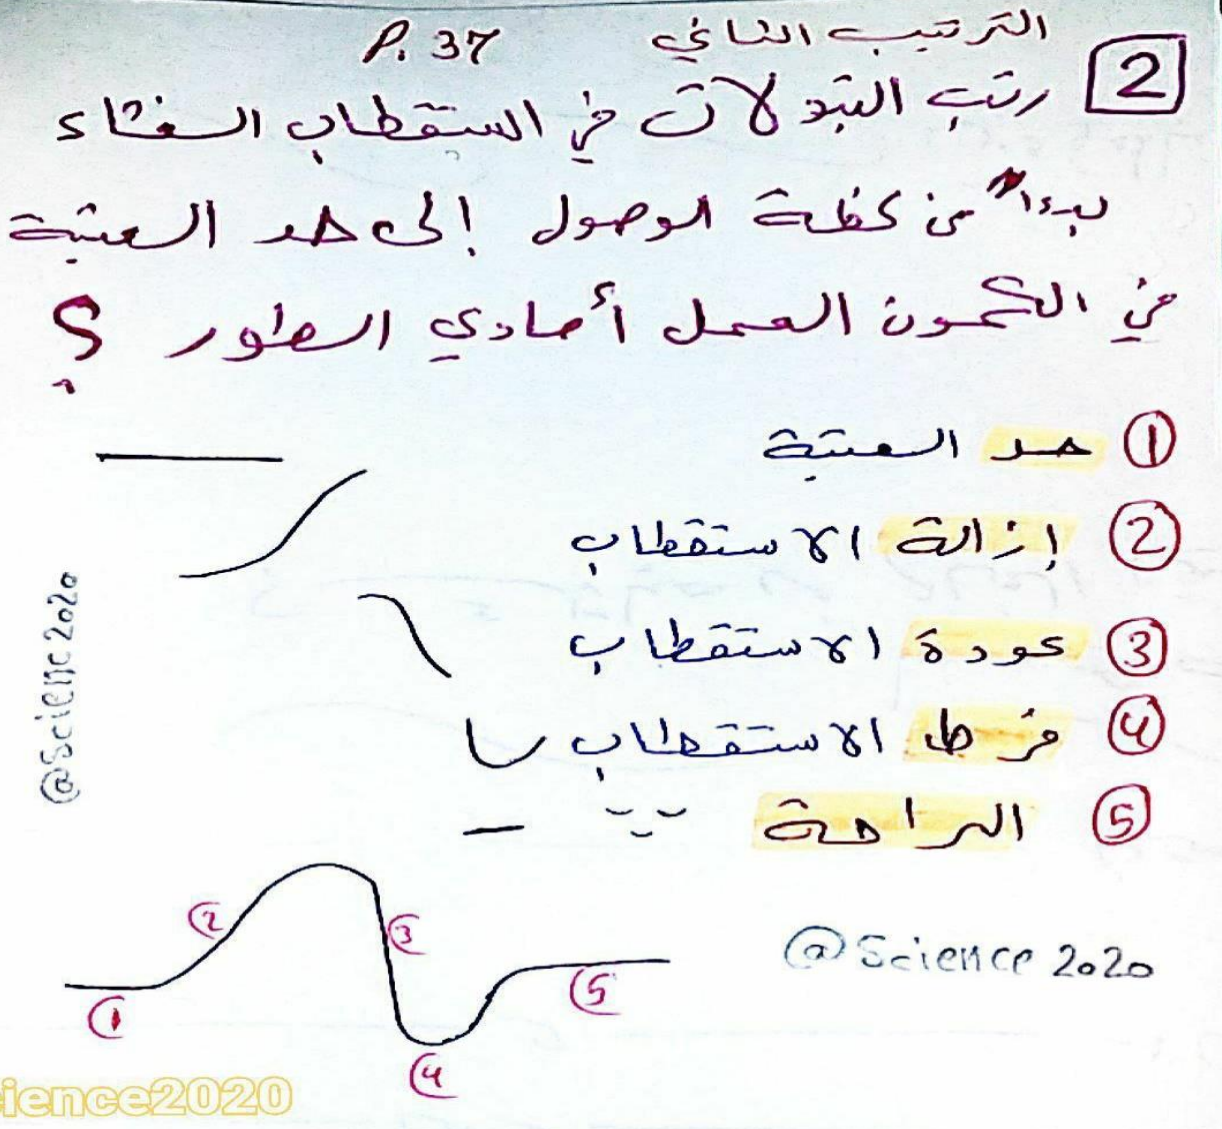 الترتيب الثاني P. 37
2 رتب التبدلات في استقطاب الغشاء
بدءاً من لحظة الوصول إلى حد العتبة
في الكمون العمل أحادي الطور ؟
① حد العتبة
② إزالة الاستقطاب
③ عودة الاستقطاب
④ فرط الاستقطاب
⑤ الراحة
@Science 2020
② ③
① ⑤
④
@Science 2020
ience2020